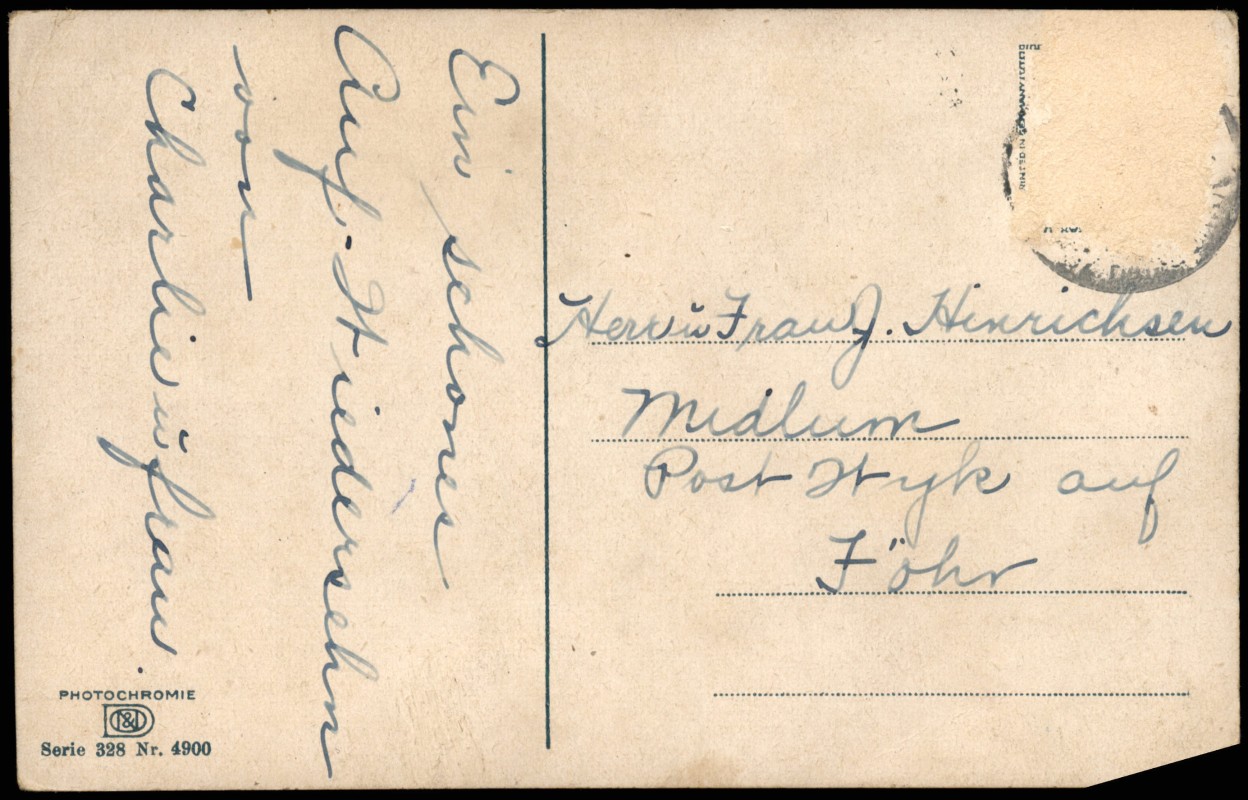 Ein schones
Auf-Wiedersehn
von
Charlie u frau.
Herr u Frau J. Hinrichsen
Midlum
Post Wyk auf
Föhr
PHOTOCHROMIE
Serie 328 Nr. 4900